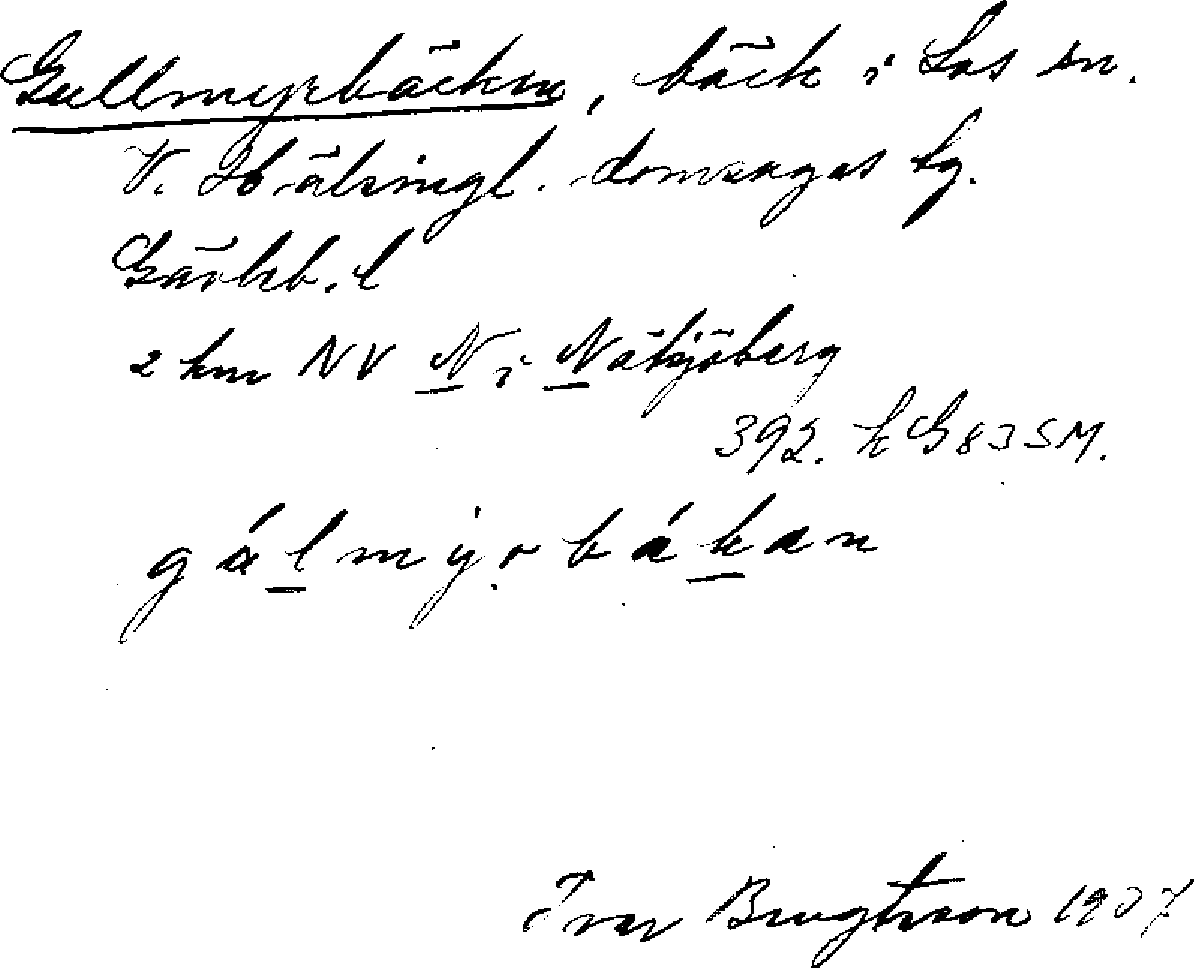 Gullmyrbäcken, bäck i Los sn.
V. Hälsingl. domsagas tg.
Gävleb. l
2 km NV N i Näsjöberg
392. k G 83 SM.
gálmýrbákan
Ivar Bengtsson 1907